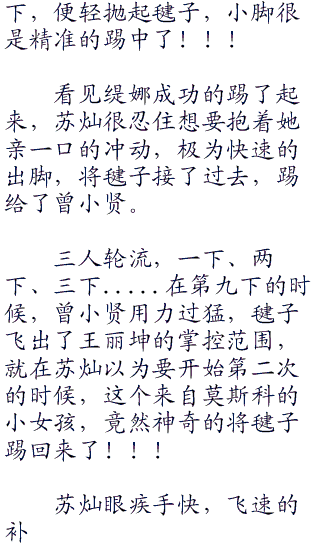 下，便轻抛起毽子，小脚很
是精准的踢中了！！！
看见缇娜成功的踢了起
来，苏灿很忍住想要抱着她
亲一口的冲动，极为快速的
出脚，将毽子接了过去，踢
给了曾小贤。
三人轮流，一下、两
下、三下.....在第九下的时
候，曾小贤用力过猛，毽子
飞出了王丽坤的掌控范围，
就在苏灿以为要开始第二次
的时候，这个来自莫斯科的
小女孩，竟然神奇的将毽子
踢回来了！！！
苏灿眼疾手快，飞速的
补